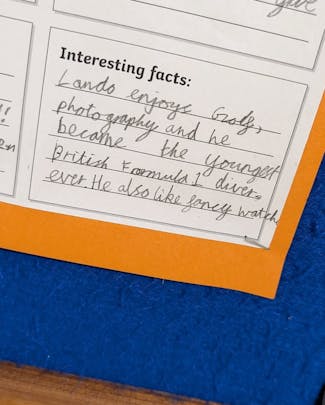 give
Interesting facts:
Lando enjoys Golf,
photography and he
became the youngest
British Formula 1 diver
ever. He also like fancy watch